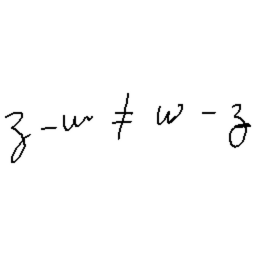 z - w ≠ w - z